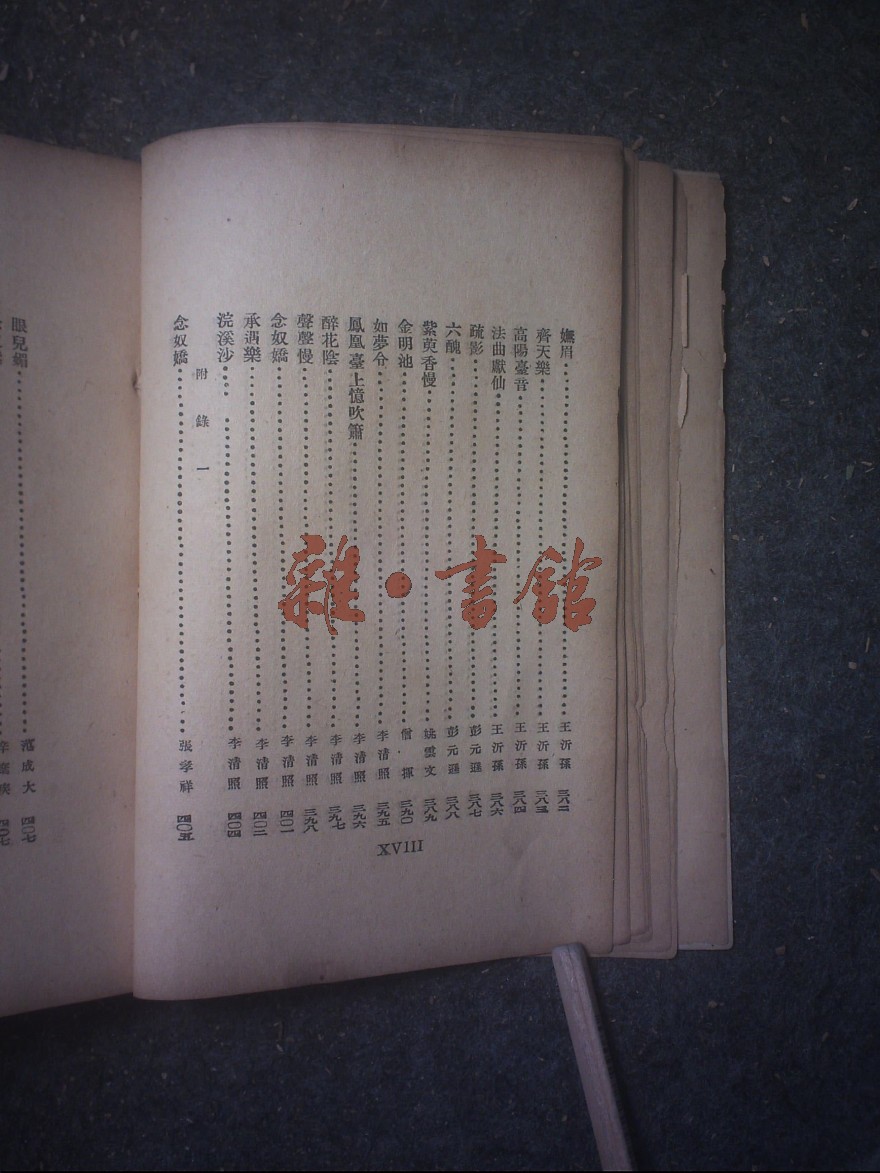 嫵眉 王沂孫 三八二
齊天樂 王沂孫 三八三
高陽臺音 王沂孫 三八四
法曲獻仙 王沂孫 三八六
疏影 彭元遜 三八七
六醜 彭元遜 三八八
紫萸香慢 姚雲文 三八九
金明池 僧揮 三九〇
如夢令 李清照 三九五
鳳凰臺上憶吹簫 李清照 三九六
醉花陰 李清照 三九七
聲聲慢 李清照 三九八
念奴嬌 李清照 四〇一
承遇樂 李清照 四〇二
浣溪沙 李清照 四〇四
附錄一
念奴嬌 張孝祥 四〇五
XVIII
眼兒媚 范成大 四〇七
雜·書館